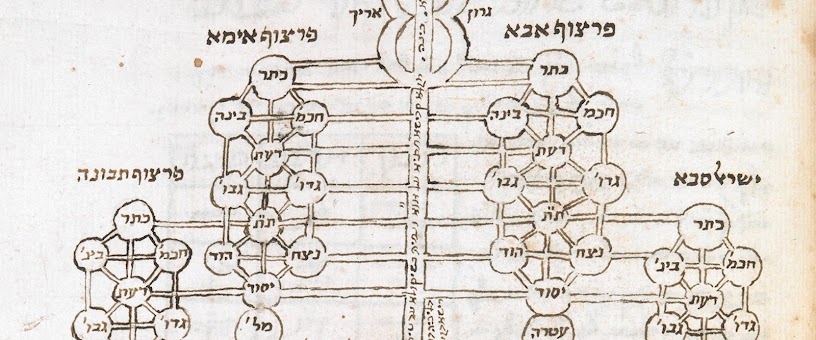 גרון
אריך
פרצוף אבא
פרצוף אימא
כתר
כתר
חכמ'
בינה
חכמ'
בינה
דעת
דעת
גדו'
גבו'
גדו'
גבו'
ישר' סבא
פרצוף תבונה
ת"ת
ת"ת
כתר
כתר
נצח
הוד
נצח
הוד
חכמ'
בינ'
חכמ'
בינ'
יסוד
יסוד
דעת
דעת
גדו'
גבו'
עטרה
מל'
גדו'
גבו'